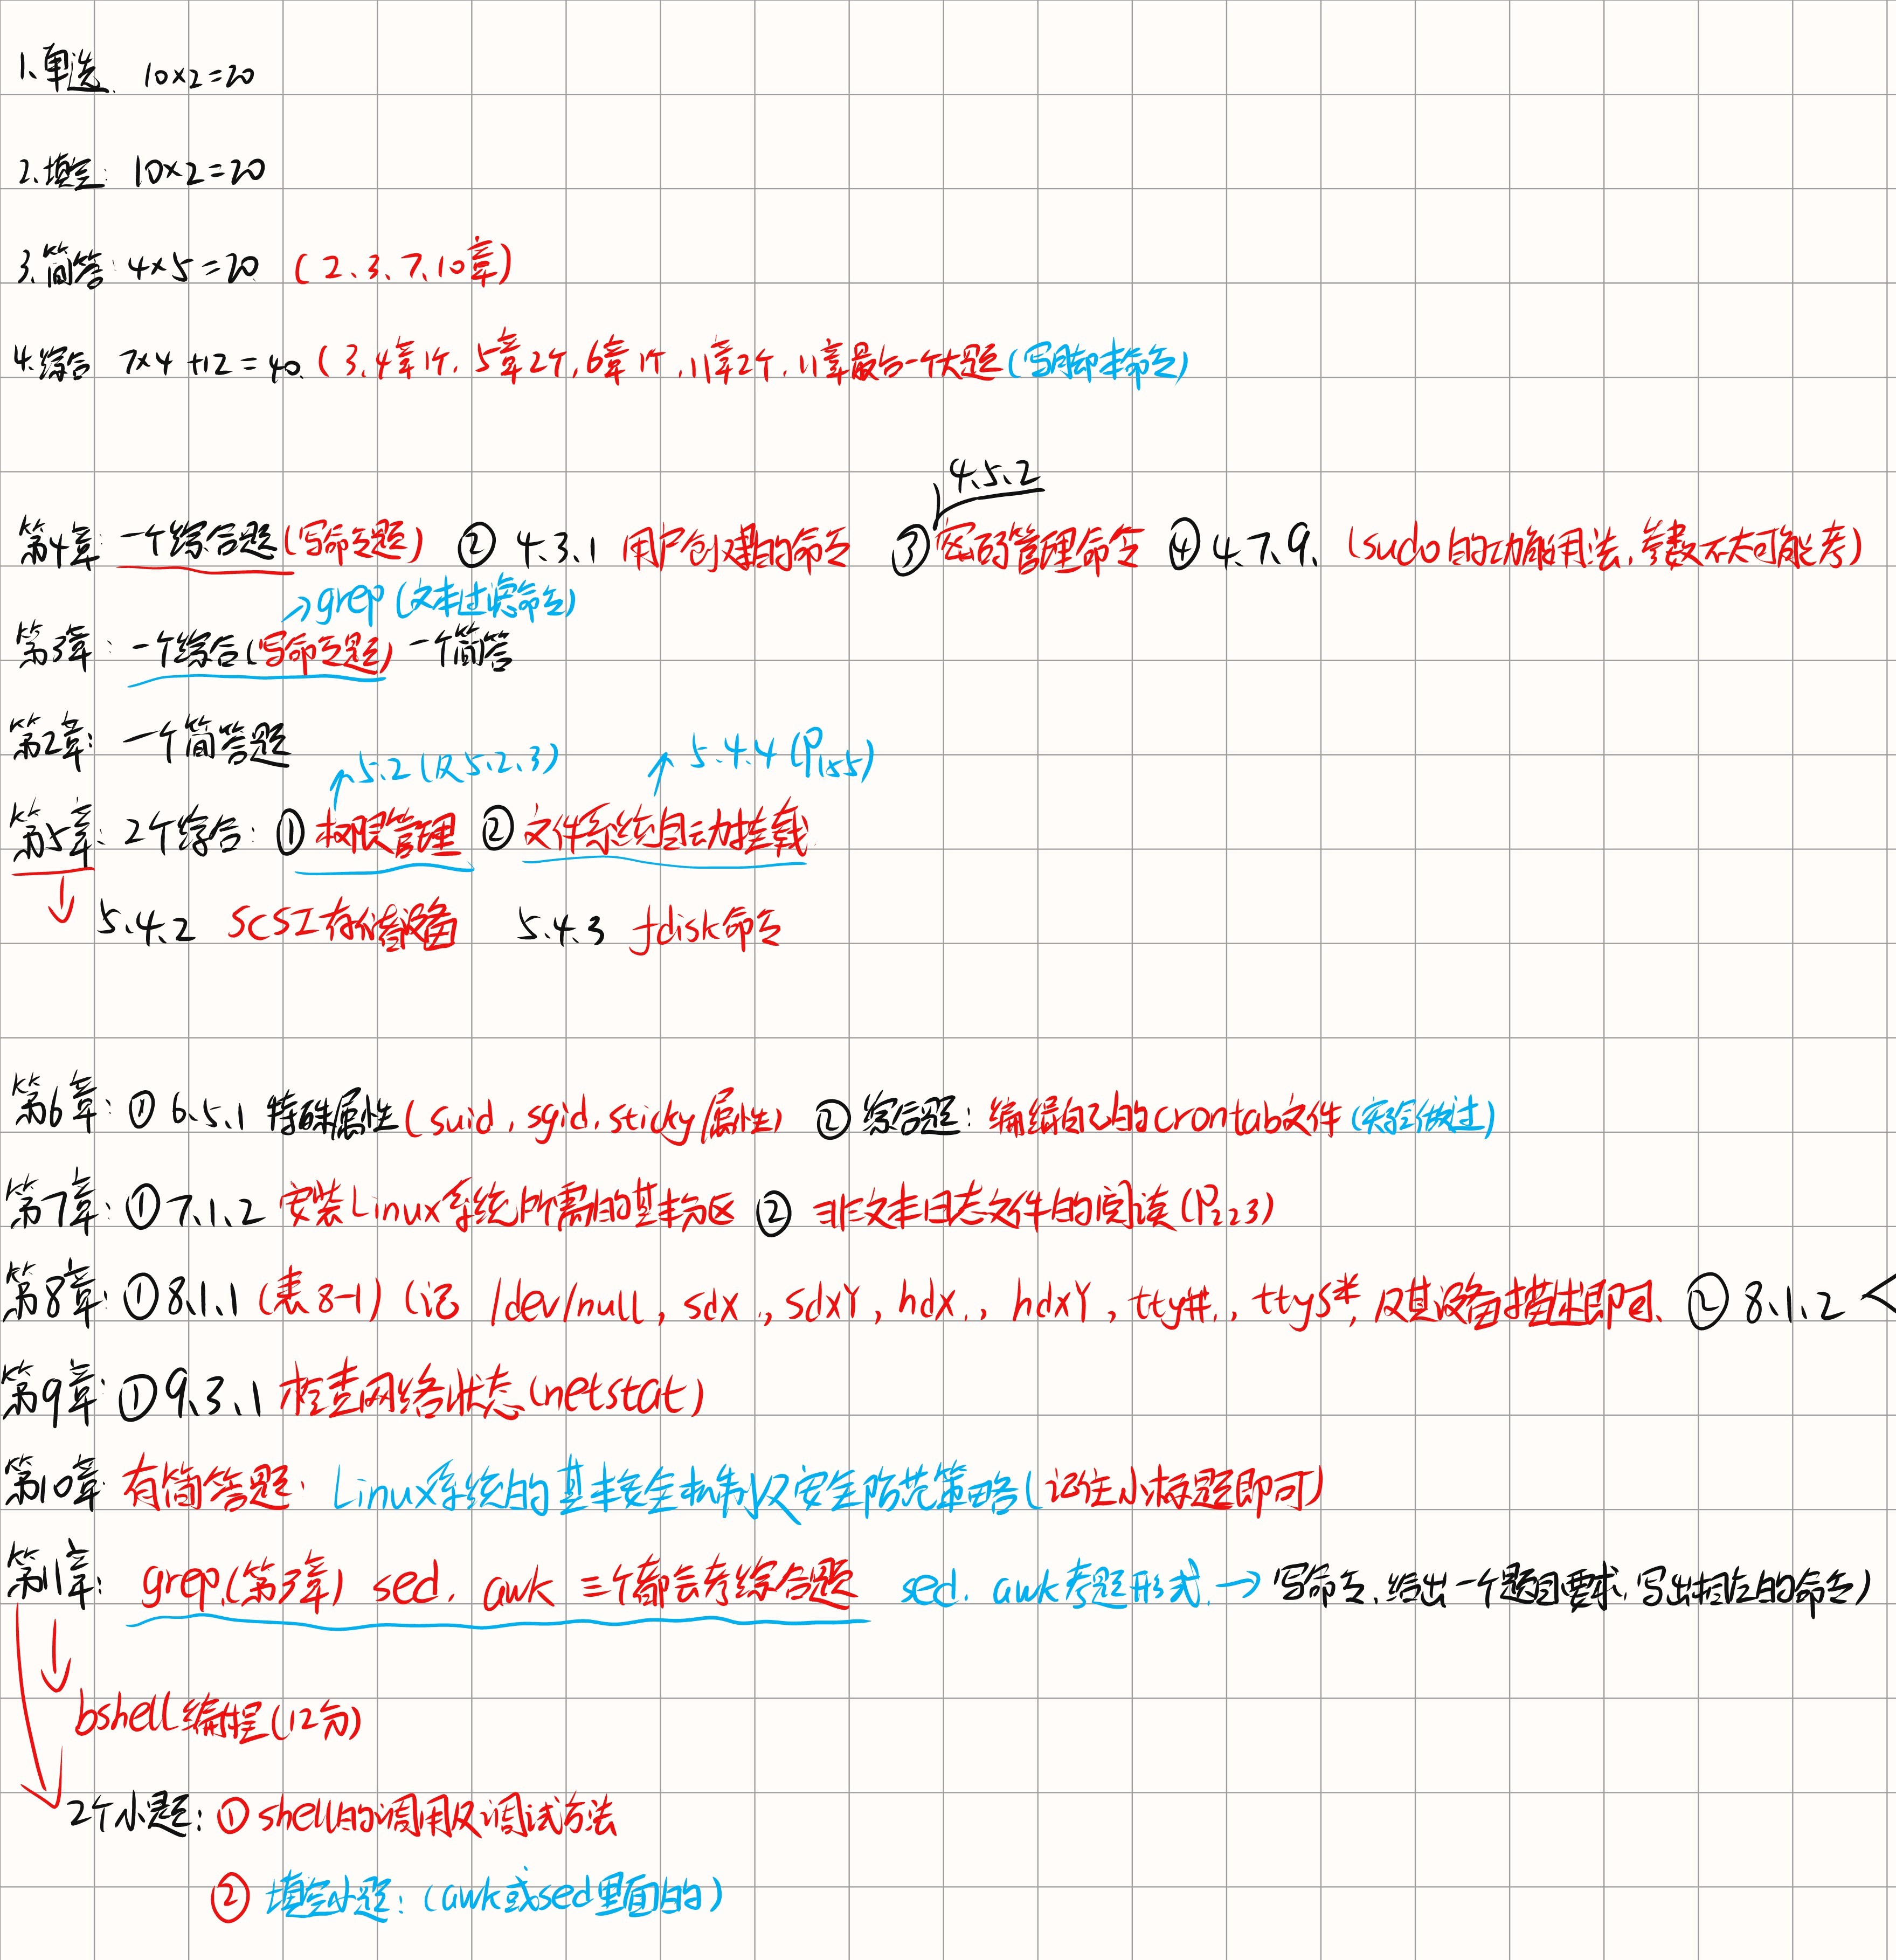 1、单选. 10×2=20
2、填空: 10×2=20
3、简答: 4×5=20 (2、3、7、10章)
4、综合 7×4+12=40. (3、4章1个, 5章2个, 6章1个, 11章2个, 11章最后一个大题(写脚本命令)
4.5.2
第4章: 一个综合题(写命令题) ② 4.3.1 用户创建的命令 ③ 密码管理命令 ④ 4.7.9. (sudo的功能用法, 参数不太可能考)
→grep (文本过滤命令)
第3章: 一个综合(写命令题) 一个简答
第2章: 一个简答题
↑5.2 (及5.2.3) ↑ 5.4.4 (P155)
第5章: 2个综合: ① 权限管理 ② 文件系统自动挂载.
↓ 5.4.2 SCSI存储设备 5.4.3 fdisk命令
第6章: ① 6.5.1 特殊属性(suid, sgid, sticky属性) ② 综合题: 编辑自己的crontab文件 (实验做过)
第7章: ① 7.1.2 安装Linux系统所需的基本分区 ② 非文本日志文件的阅读 (P223)
第8章: ① 8.1.1 (表8-1) (记 /dev/null, sdx, sdxY, hdx, hdxY, tty#, ttyS*, 及其设备描述即可、 ② 8.1.2 <
第9章: ① 9.3.1 检查网络状态 (netstat)
第10章: 有简答题: Linux系统的基本安全机制及安全防范策略 (记住小标题即可)
第11章: grep,(第3章) sed, awk 三个都会考综合题 sed, awk考题形式, → 写命令, 给出一个题目要求, 写出相应的命令)
↓ bshell编程(12分)
2个小题: ① shell的调用及调试方法
② 填空小题: (awk或sed里面的)